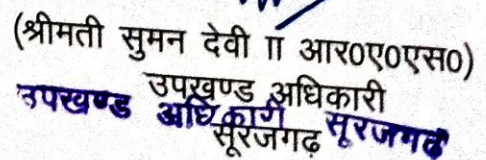 (श्रीमती सुमन देवी II आर0ए0एस0)
उपखण्ड अधिकारी
सूरजगढ़
उपखण्ड अधिकारी सूरजगढ़